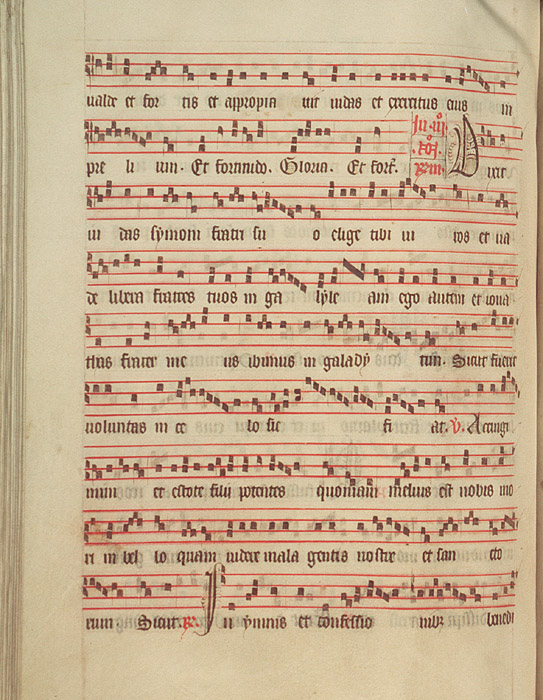 ualde et for tis et apropia uit iudas et exercitus eius in
pre li um. Et formido. Gloria. Et forˀ. Dixit
iu das symoni fratri su o elige tibi ui ros et ua
de libera fratres tuos in ga lyle am ego autem et iona
thas frater me us ibimus in galady tim. Sicut fuerit
uoluntas in ce lo sic fi at. V. Accingi
mini et estote filij potentes quoniam melius est nobis mo
ri in bel lo quam uidere mala gentis nostre et san cto
rum. Sicut. R. In ymnis et confessio nibꝫ benedi